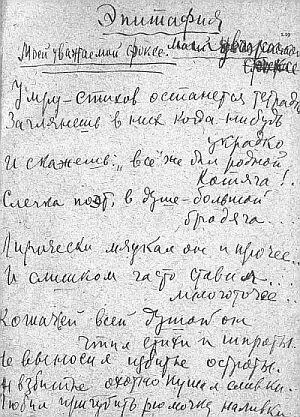 Эпитафия
Моей уважаемой фоксе.
Умру – стихов останется тетрадь
Заглянешь в них когда-нибудь
украдко
И скажешь: „всё же был родной
котяга!..
Слегка поэт, в душе – большой
бродяга...
Лирически мяукал он и прочее...
И слишком часто ставил...
многоточее...
Кошачей всей душой он
чтил стихи и шпроты.
Не выносил избитые остроты.
И взбитые охотно кушал сливки.
Любил пригубить рюмочке наливки